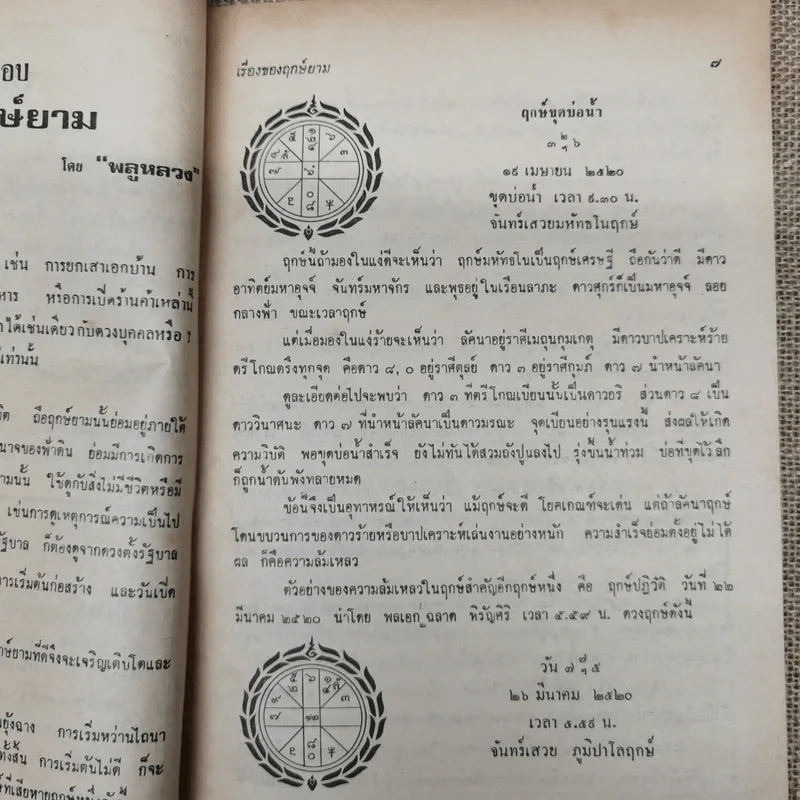 อบ
ษ์ยาม
โดย "พลูหลวง"
เช่น การยกเสาเอกบ้าน การ
หาร หรือการเปิดร้านค้าเหล่านี้
ได้เช่นเดียวกับดวงบุคคลหรือ ?
เท่านั้น
ถือฤกษ์ยามนั้นย่อมอยู่ภายใต้
นาจของฟ้าดิน ย่อมมีการเกิดการ
ามนั้น ใช้ดูกับสิ่งไม่มีชีวิตหรือมี
เช่นการดูเหตุการณ์ความเป็นไป
รัฐบาล ก็ต้องดูจากดวงตั้งรัฐบาล
การเริ่มต้นก่อสร้าง และวันเปิด
กษ์ยามที่ดีจึงจะเจริญเติบโตและ
ยุ้งฉาง การเริ่มหว่านไถนา
ทั้งสิ้น การเริ่มต้นไม่ดี ก็จะ
เรื่องของฤกษ์ยาม
๗
ฤกษ์ขุดบ่อน้ำ
๑๙ เมษายน ๒๕๒๐
ขุดบ่อน้ำ เวลา ๙.๓๐ น.
จันทร์เสวยมหัทธโนฤกษ์
ฤกษ์นี้ถ้ามองในแง่ดีจะเห็นว่า ฤกษ์มหัทธโนเป็นฤกษ์เศรษฐี ถือกันว่าดี มีดาว
อาทิตย์มหาอุจจ์ จันทร์มหาจักร และพุธอยู่ในเรือนลาภะ ดาวศุกร์ก็เป็นมหาอุจจ์ ลอย
กลางฟ้า ขณะเวลาฤกษ์
แต่เมื่อมองในแง่ร้ายจะเห็นว่า ลัคนาอยู่ราศีเมถุนกุมเกตุ มีดาวบาปเคราะห์ร้าย
ตรีโกณตรึงทุกจุด คือดาว ๘, ๐ อยู่ราศีตุลย์ ดาว ๓ อยู่ราศีกุมภ์ ดาว ๗ นำหน้าลัคนา
ดูละเอียดต่อไปจะพบว่า ดาว ๓ ที่ตรีโกณเบียนนั้นเป็นดาวอริ ส่วนดาว ๘ เป็น
ดาววินาศนะ ดาว ๗ ที่นำหน้าลัคนาเป็นดาวมรณะ จุดเบียนอย่างรุนแรงนี้ ส่งผลให้เกิด
ความวิบัติ พอขุดบ่อน้ำสำเร็จ ยังไม่ทันได้สวมถังปูนลงไป รุ่งขึ้นน้ำท่วม บ่อที่ขุดไว้ลึก
ก็ถูกน้ำดันพังทลายหมด
ข้อนี้จึงเป็นอุทาหรณ์ให้เห็นว่า แม้ฤกษ์จะดี โยคเกณฑ์จะเด่น แต่ถ้าลัคนาฤกษ์
โดนขบวนการของดาวร้ายหรือบาปเคราะห์เล่นงานอย่างหนัก ความสำเร็จย่อมตั้งอยู่ไม่ได้
ผล ก็คือความล้มเหลว
ตัวอย่างของความล้มเหลวในฤกษ์สำคัญอีกฤกษ์หนึ่ง คือ ฤกษ์ปฏิวัติ วันที่ ๒๒
มีนาคม ๒๕๒๐ นำโดย พลเอก ฉลาด หิรัญศิริ เวลา ๕.๕๙ น. ดวงฤกษ์ดังนี้
๒๖ มีนาคม ๒๕๒๐
เวลา ๕.๕๙ น.
จันทร์เสวย ภูมิปาโลฤกษ์